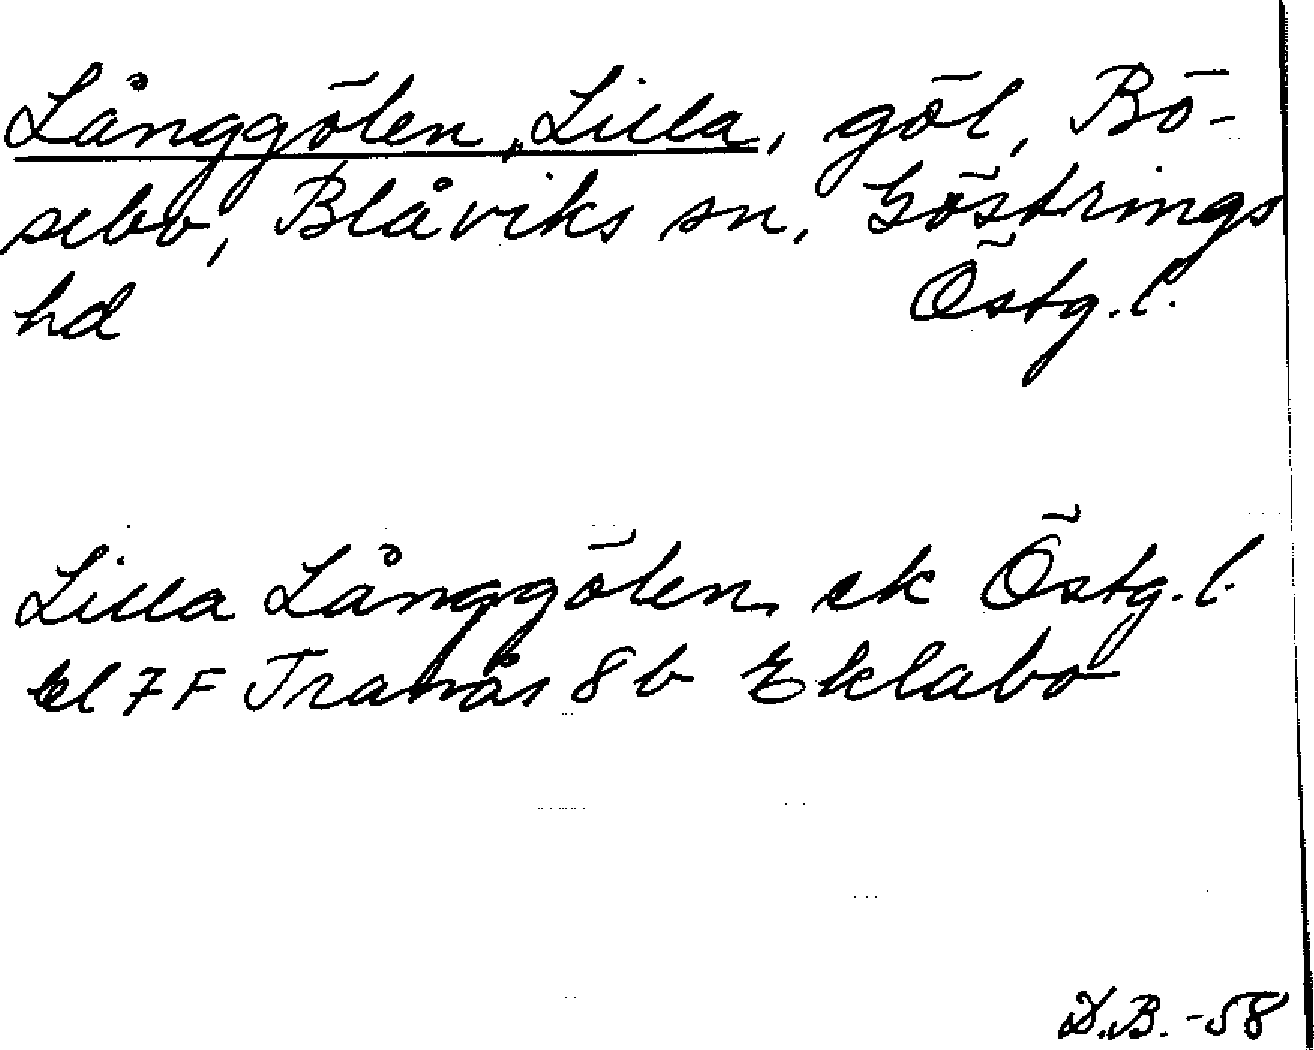 Långgölen, Lilla, göl, Bö-
sebo, Blåviks sn, Göstrings
hd Östg. l.
Lilla Långgölen, ek Östg. l.
bl 7 F Tranås 8 b Eklabo
D.B. -58